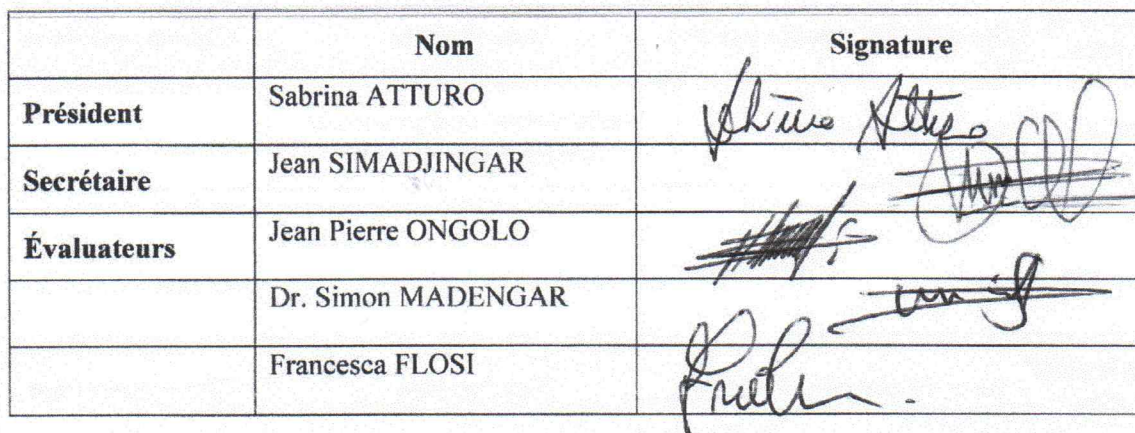 Nom Signature
Président Sabrina ATTURO
Secrétaire Jean SIMADJINGAR
Évaluateurs Jean Pierre ONGOLO
Dr. Simon MADENGAR
Francesca FLOSI